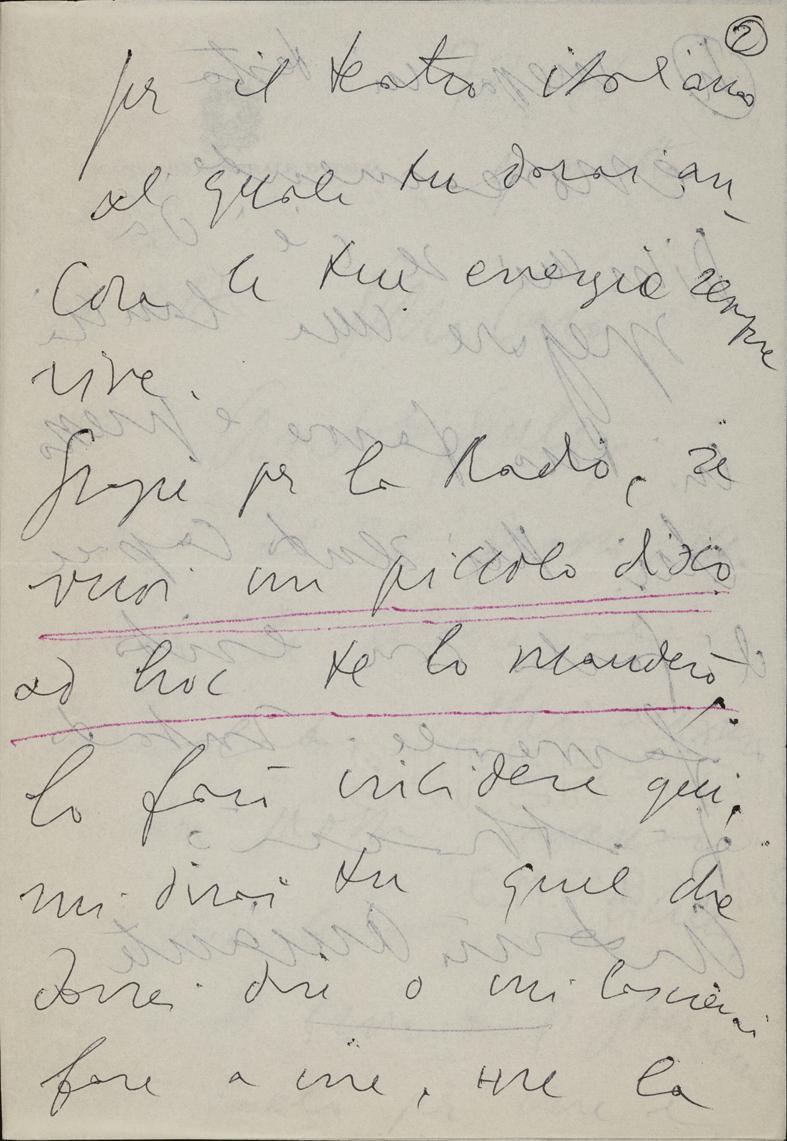 2
per il teatro italiano
al quale tu darai an_
cora le tue energie sempre
vive.
Grazie per la Radio, se
vuoi un piccolo disco
ad hoc te lo manderò.
Lo farò incidere qui,
mi dirai tu quel che
dovrei dire o mi lascierai
fare a me, me la